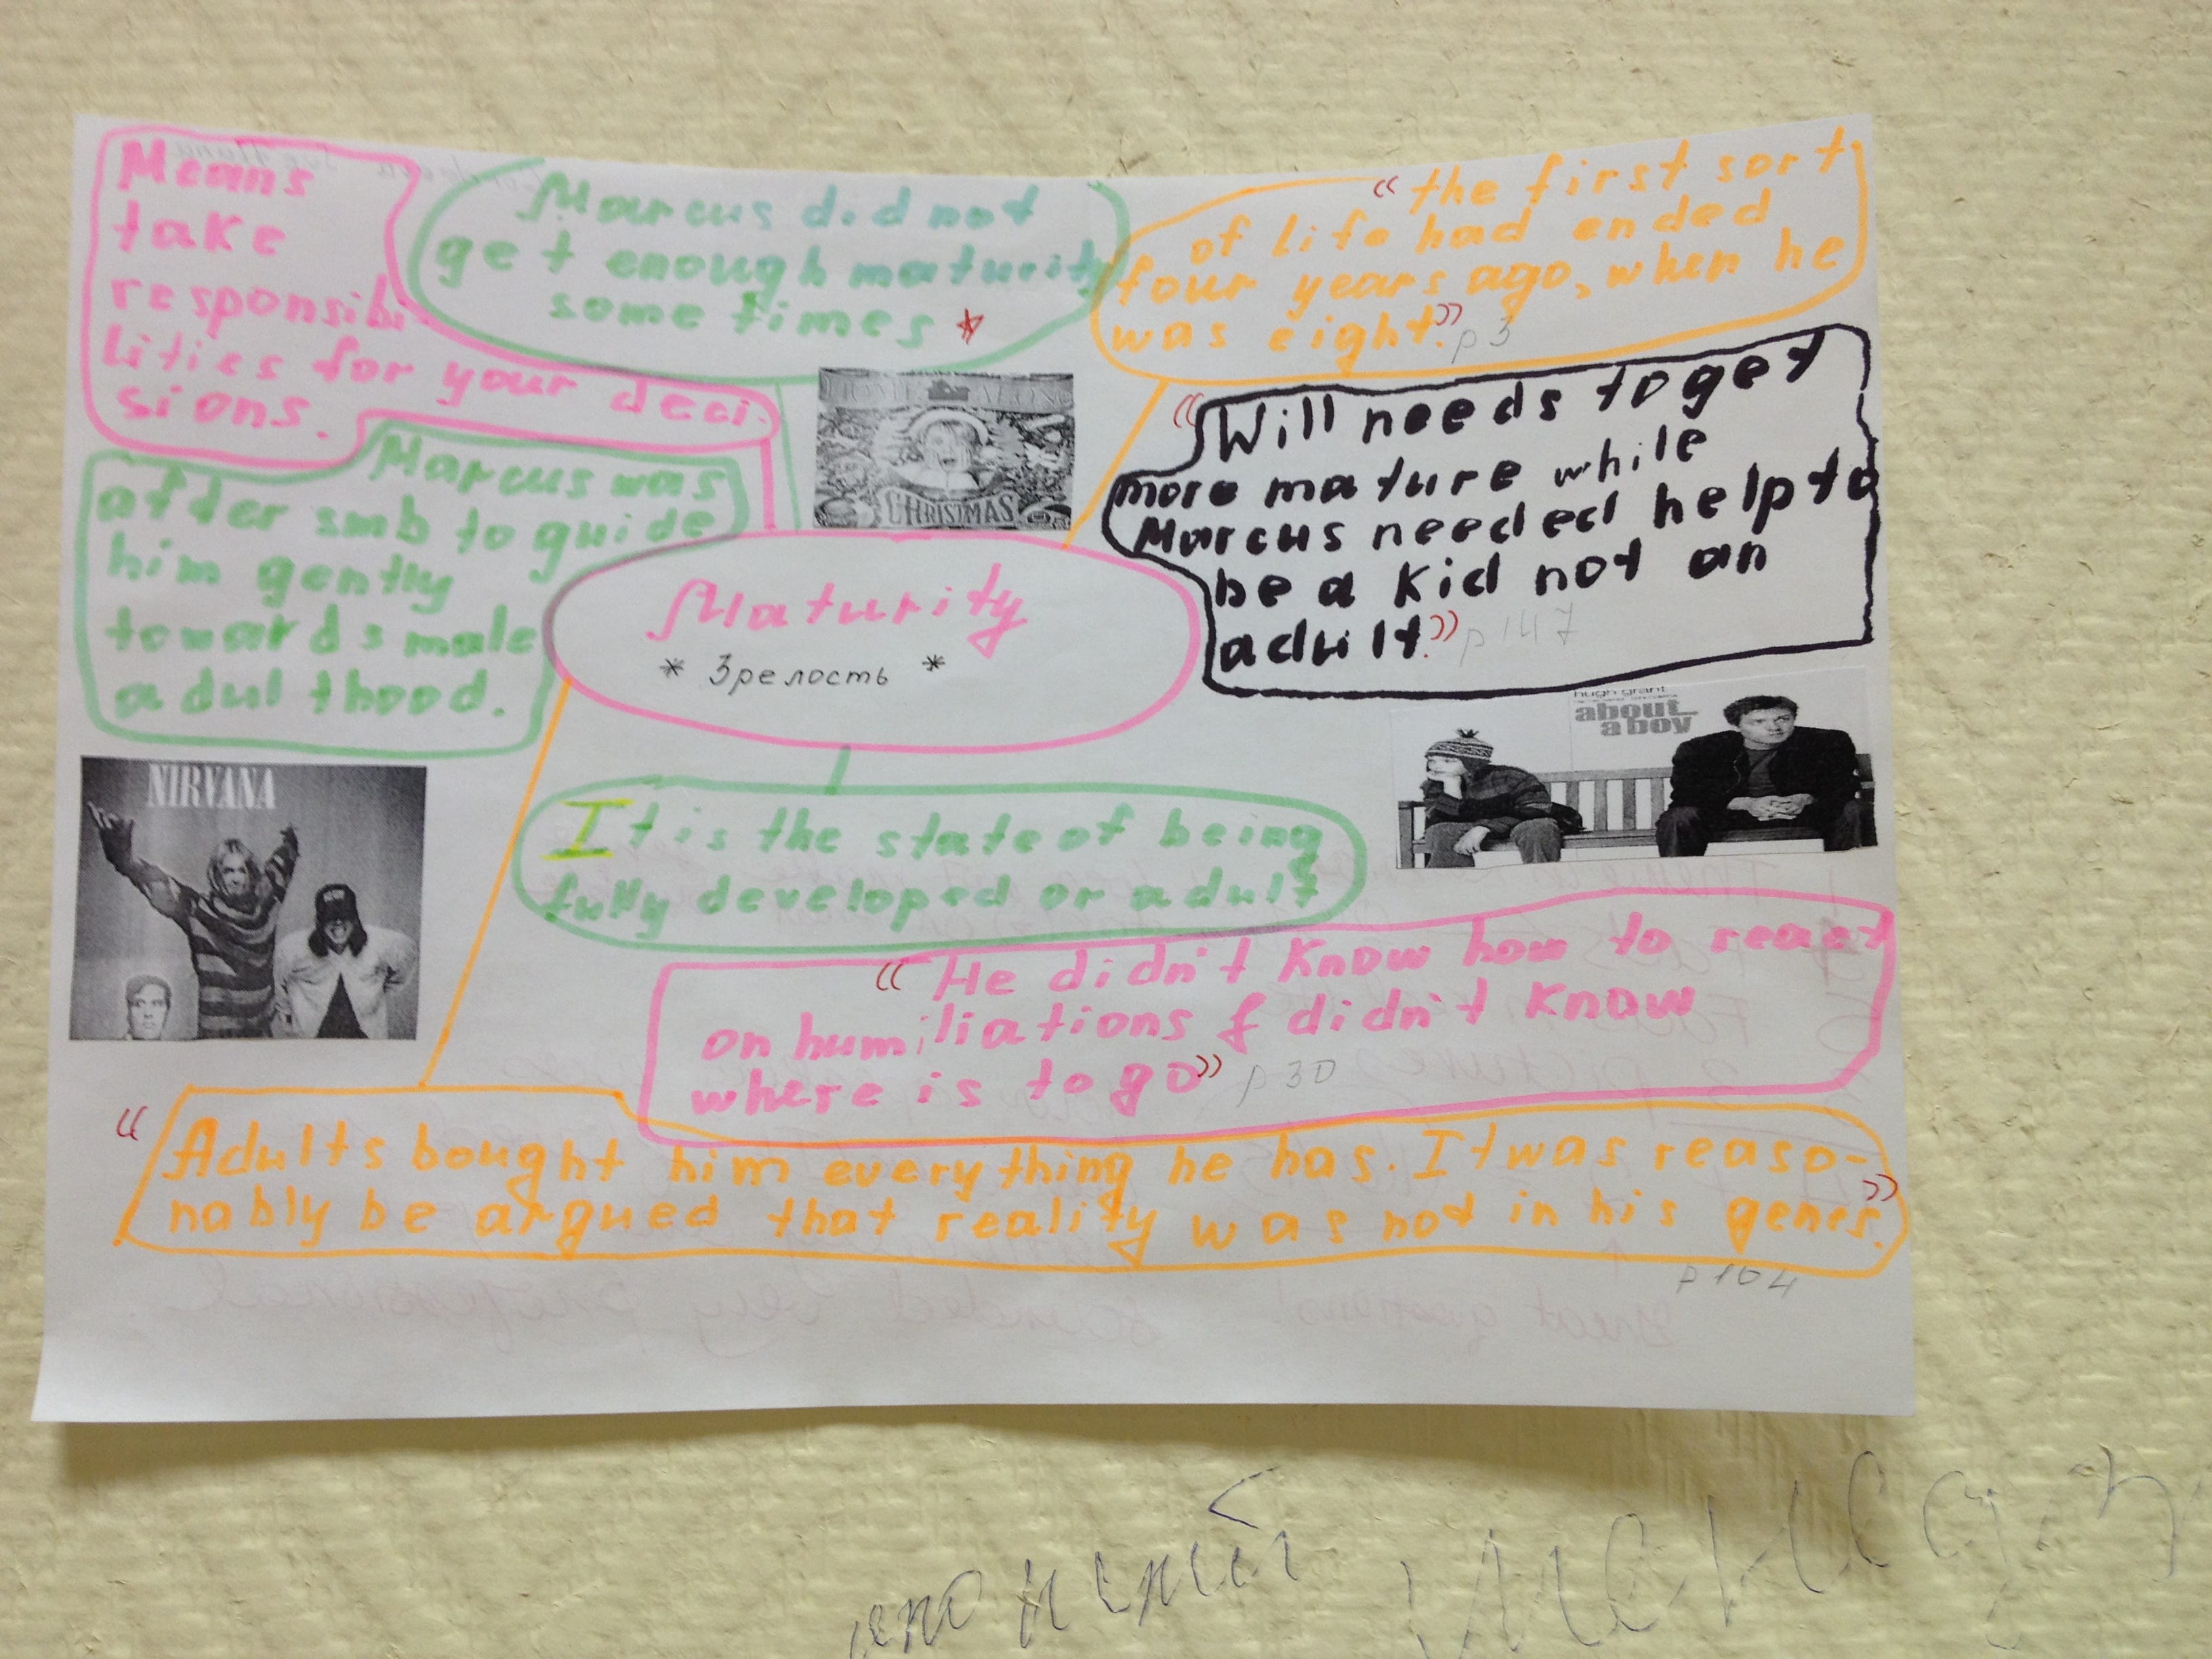 Means
take
responsibi-
lities for your deci-
sions.
Marcus did not
get enough maturity
some times *
"the first sort
of life had ended
four years ago, when he
was eight." p 3
HOME ALONE
CHRISTMAS
"Will needs to get
more mature while
Marcus needed help to
be a kid not an
adult." p 147
Marcus was
after smb to guide
him gently
towards male
adulthood.
Maturity
* Зрелость *
hugh grant
about
a boy
NIRVANA
It is the state of being
fully developed or adult
"He didn't know how to react
on humiliations & didn't know
where is to go" p 30
"Adults bought him everything he has. It was reaso-
nably be argued that reality was not in his genes."
p 104